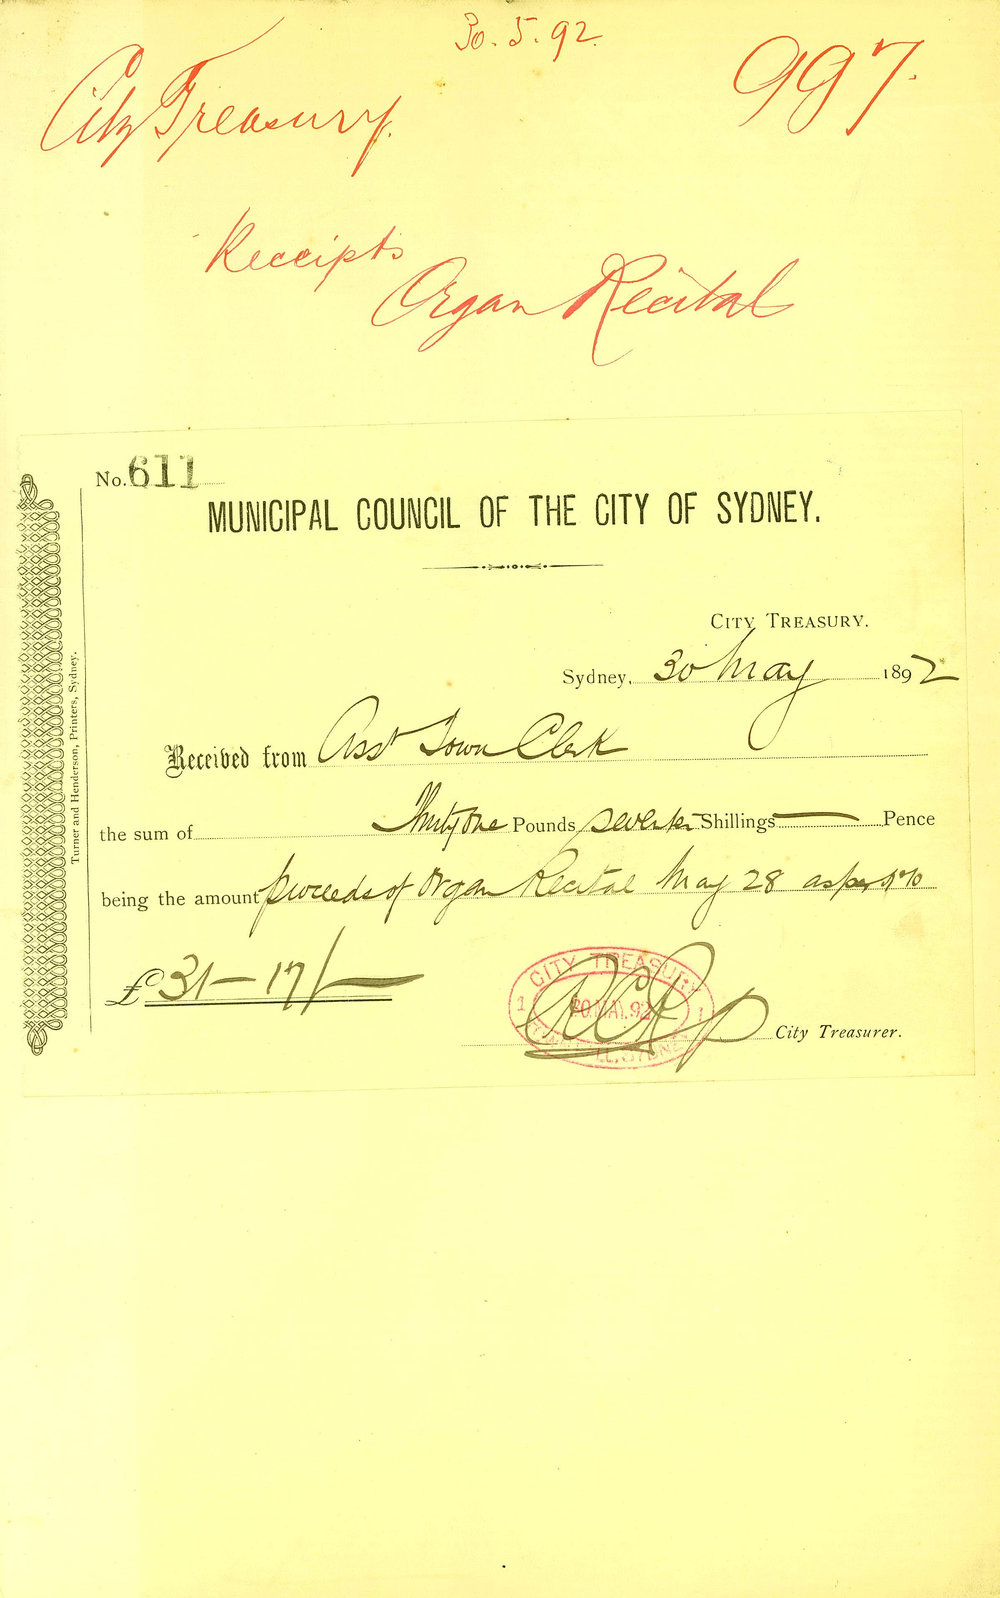 30.5.92.
997.
City Treasury.
Receipts
Organ Recital
No. 611
MUNICIPAL COUNCIL OF THE CITY OF SYDNEY.
CITY TREASURY.
Sydney, 30 May 1892
Received from Asst Town Clerk
the sum of Thirty One Pounds seventeen Shillings — Pence
being the amount proceeds of Organ Recital May 28 as per a/c
£31 — 17/ —
CITY TREASURY
30.MAY.92
1 1
TOWN HALL, SYDNEY
City Treasurer.
Turner and Henderson, Printers, Sydney.